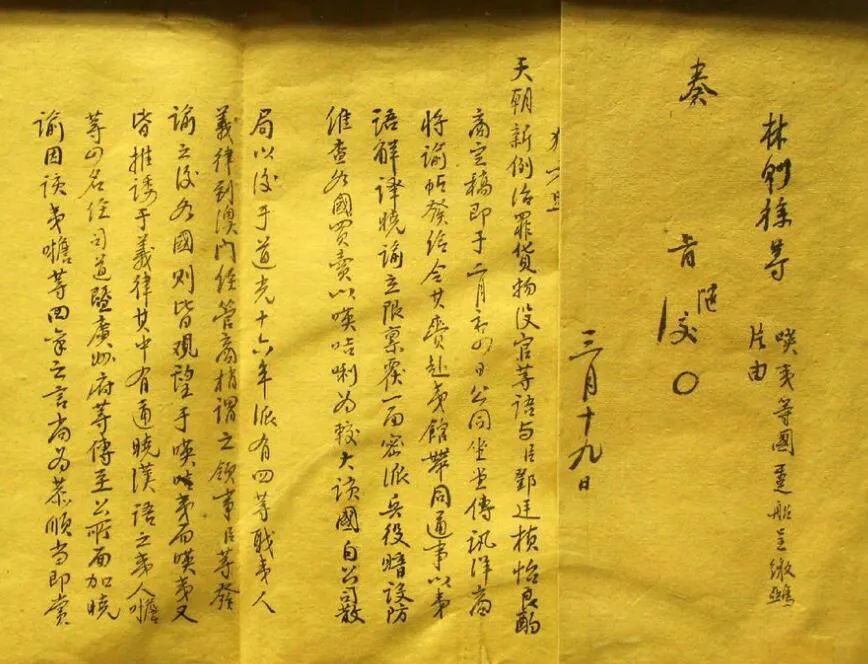 林則徐等
嘆夷等國躉船呈繳鴉
片由
奏
三月十九日
天朝新例治罪貨物没官等語与臣鄧廷楨怡良酌
商定稿即于二月初四日公同坐堂傳訊洋商
将諭帖發给令其賫赴夷館帶同通事以夷
語解译曉諭立限禀覆一面密派兵役暗設防
維查各國買賣以嘆咭唎为較大该國自公司散
局以後于道光十六年派有四等職夷人
義律到澳门經管商梢謂之领事臣等發
諭之後各國则皆观望于嘆咭夷而嘆夷又
皆推诿于義律其中有通曉漢語之夷人嗜
等四名经司道暨廣州府等傳至公所面加曉
諭因该夷嗜等四笔之言尚为恭順当即賞